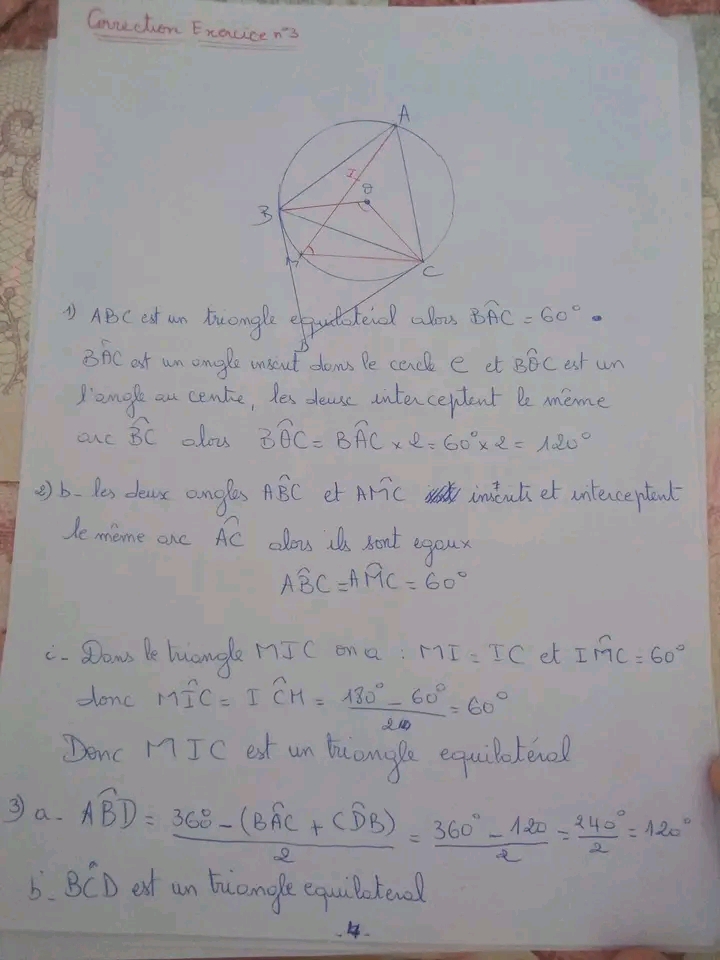 Correction Exercice n°3
A
I
O
B
M
C
D
1) ABC est un triangle equilatéral alors BÂC = 60°.
BÂC est un angle inscrit dans le cercle C et BÔC est un
l'angle au centre, les deux interceptent le même
arc B͡C alors BÔC = BÂC × 2 = 60° × 2 = 120°
2) b- les deux angles AB̂C et AM̂C inscrits et interceptent
le même arc A͡C alors ils sont egaux
AB̂C = AM̂C = 60°
c- Dans le triangle MIC on a : MI = IC et IM̂C = 60°
donc MÎC = IĈM = (180° - 60°)/2 = 60°
Donc MIC est un triangle equilatéral
3) a- AB̂D = (360° - (BÂC + CD̂B))/2 = (360° - 120)/2 = 240°/2 = 120°
b- BĈD est un triangle equilateral
- 4 -